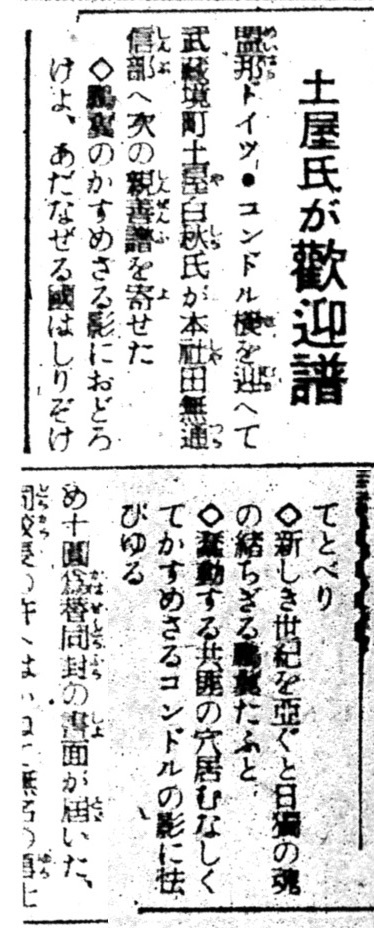 土屋氏が歡迎譜
盟邦ドイツ●コンドル機を迎へて
武藏境町土屋白秋氏が本社田無通
信部へ次の親善譜を寄せた
◇鵬翼のかすめさる影におどろ
けよ、あだなぜる國はしりぞけ
てとべり
◇新しき世紀を亞ぐと日獨の魂
の緒ちぎる鵬翼たふと
◇蠢動する共匪の穴居むなしく
てかすめさるコンドルの影に怯
びゆる
め十圓爲替同封の書面が届いた、